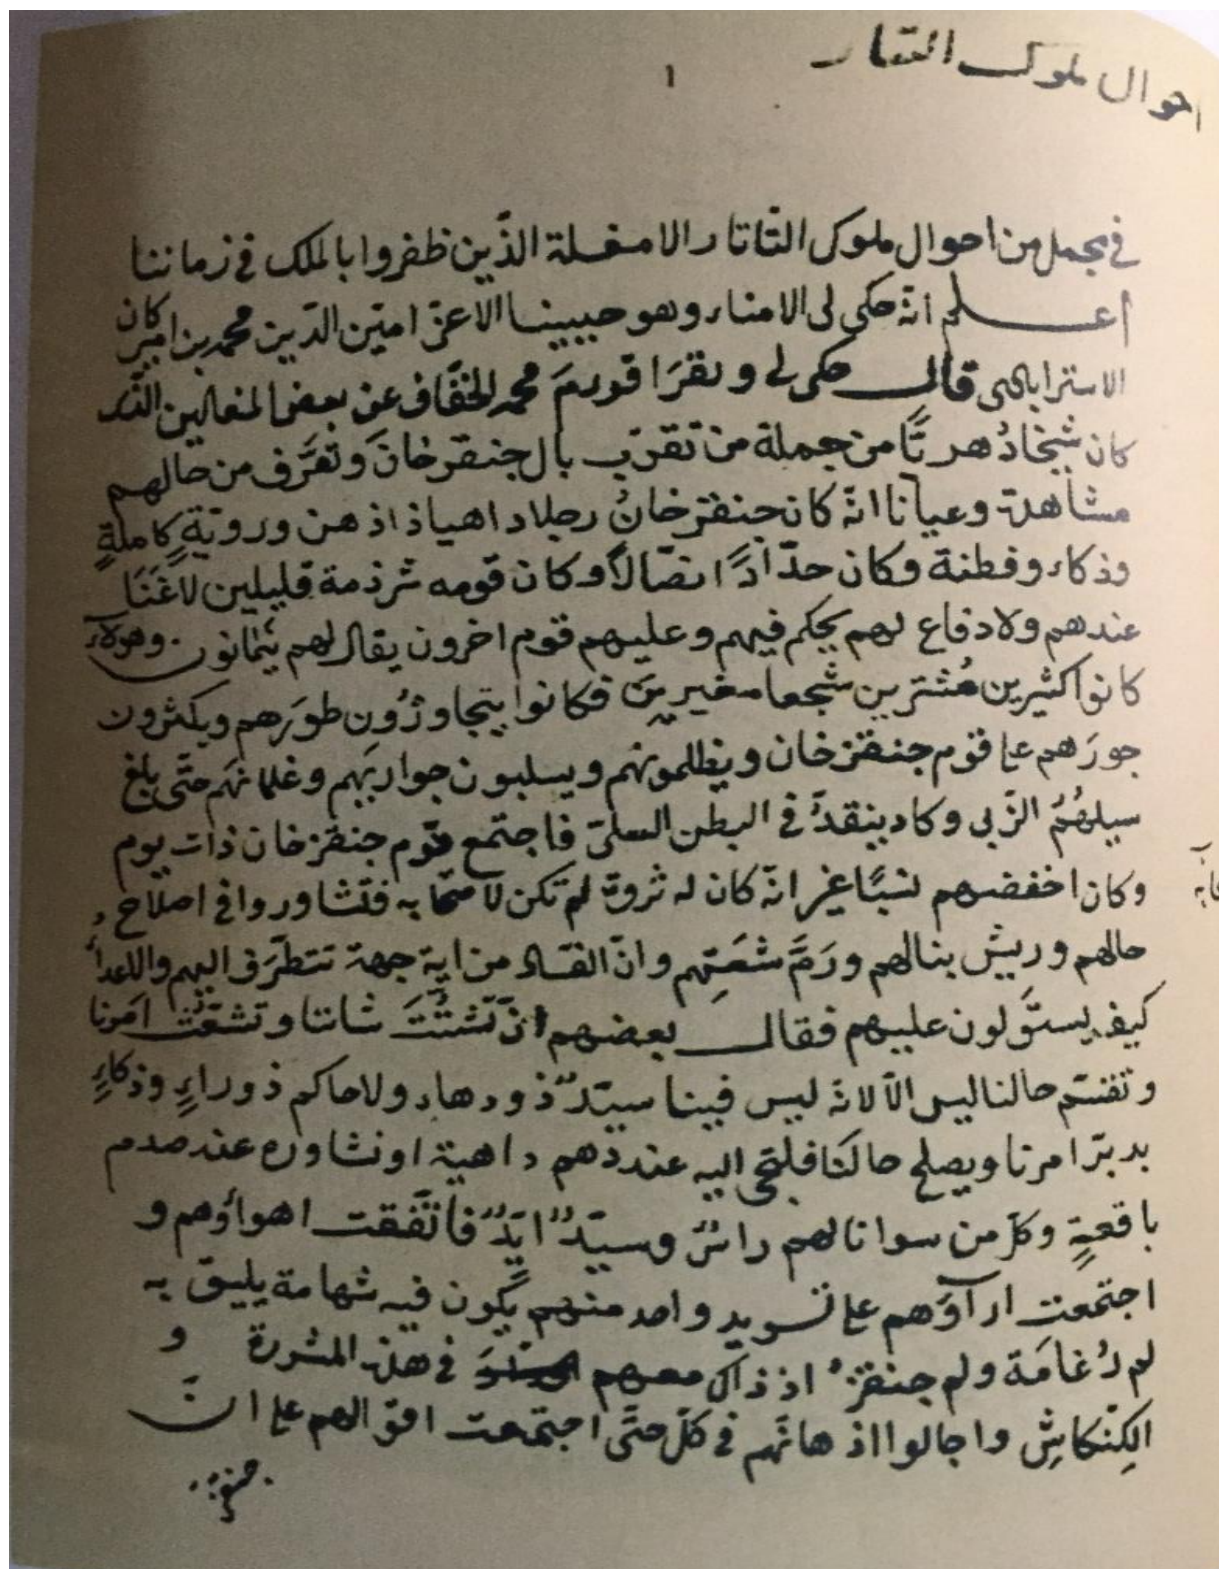 احوال ملوك التتار
١
في مجمل من احوال ملوك التّاتار الامغلة الذّين ظفروا بالملك في زماننا
اعلم انّه حكى لى الامناء وهو حبيبنا الاعزّ امين الدّين محمد بن امير كان
الاسترابا‌جى قال حكى لى محمد الخفّاف عن بعض
كان شيخا دُهريّا من جملة من تقرّب بال جنقز خان وتعرّف من حالهم
مشاهدة وعيانا انّه كان جنقز خانُ رجلا داهيا ذا ذهن ورويّةٍ كاملةٍ
وذكاء وفطنة وكان حدّادًا نصّالًا وكان قومه شرذمة قليلين لا غَنَا
عندهم ولا دفاع لهم يحكم فيهم وعليهم قوم اخرون يقال لهم وهولاء
كانوا كثيرين شجعا مغيرين فكانوا يتجاوزُون طورَهم ويكثرون
جورَهم على قوم جنقز خان ويظلمونهم ويسلبون جواريَهم وغلمانَهم حتّى بلغ
سيلهُمُ الزّبى وكاد ينقدّ في البطن السلىّ فاجتمع قوم جنقز خان ذات يوم
وكان اخفضهم نسبًا غير انّه كان له ثروة لم تكن لاصحابه فتشاوروا في اصلاح
حالهم وريش بنالهم ورَمِّ شعَثِهم وانّ الفساد من ايّة جهة تتطرّف اليهم والاعداء
كيف يستَولون عليهم فقال بعضهم انّ تشتُّتَ شاننا وتشعّث امرنا
وحالنا ليس الّا لانّه ليس فينا سيّدٌ ذو دهاء ولا حاكم ذو راءٍ وذكاءٍ
يدبّر امرنا ويصلح حالَنا فنلتجى اليه عند دَهم داهية او نشاوره عند صدم
باقعةٍ وكلّ من سوانا لهم راسٌ وسيّدٌ ايّدٌ فاتّفقت اهواؤهم و
اجتمعت اراؤهم على تسويد واحد منهم يكون فيه شهامة يليق به
ولم جنقز اذ ذاك معهم في هذه المشورة و
الكِنكاشِ واجالوا اذهانَهم في كلّ حتّى اجتمعت اقوالهم على انّ
جنقز